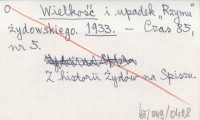 Wielkość i upadek „Rzymu"
żydowskiego. 1933. – Czas 85,
nr 5.
Z historii Żydów na Spiszu.